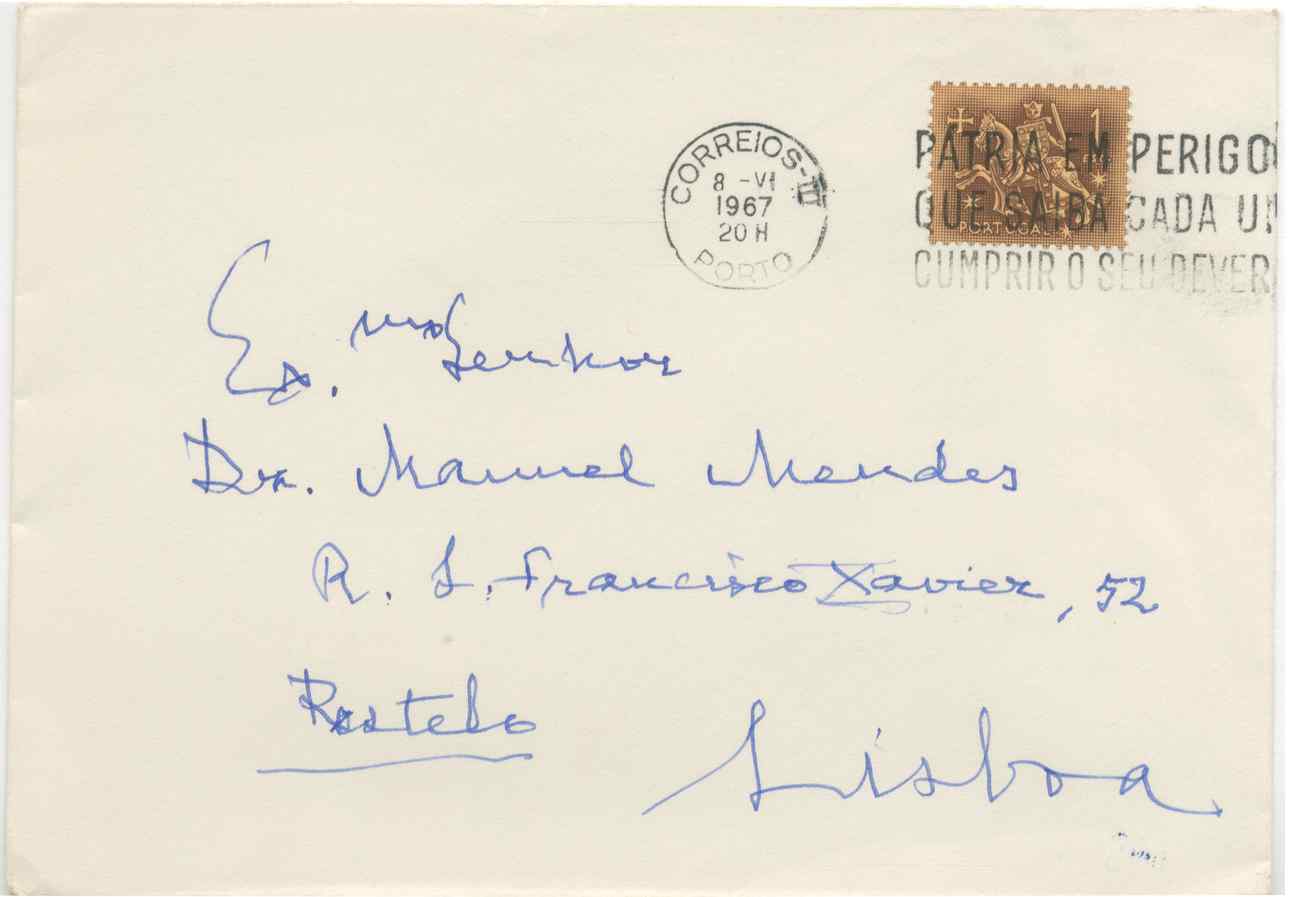 CORREIOS-III
8 -VI
1967
20 H
PORTO
1
PORTUGAL
PÁTRIA EM PERIGO
QUE SAIBA CADA UM
CUMPRIR O SEU DEVER
Ex.mo Senhor
Dr. Manuel Mendes
R. S. Francisco Xavier, 52
Restelo
Lisboa